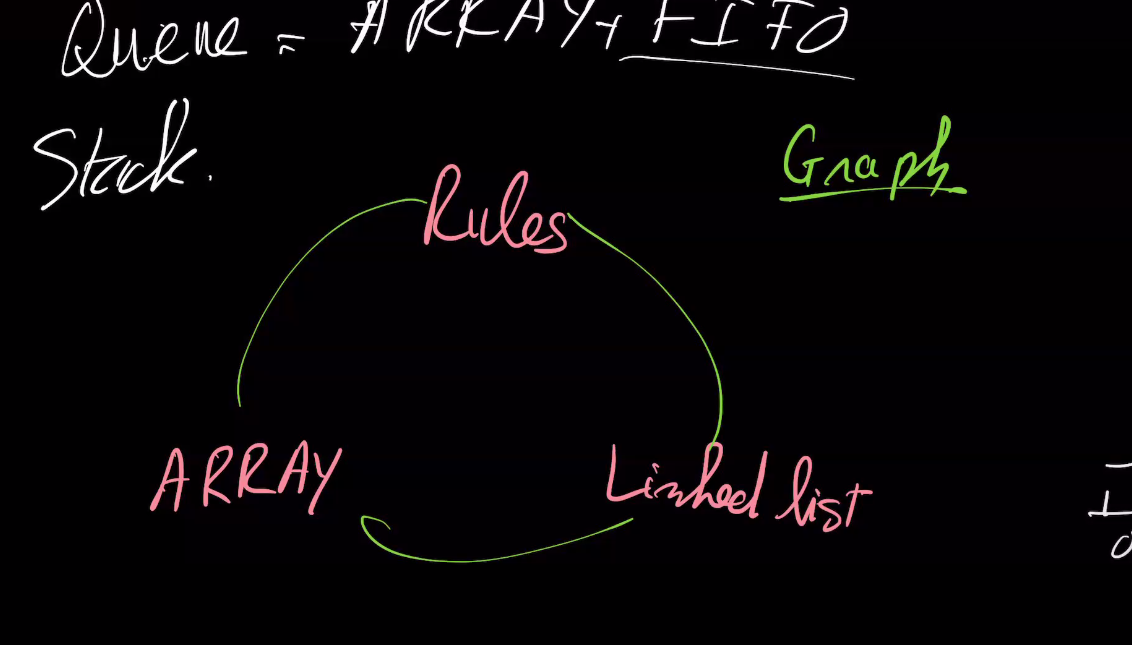 Queue = ARRAY + FIFO
Stack.
Graph
Rules
ARRAY
Linked list